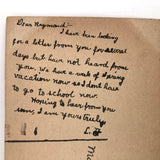 Dear Raymond:-
I have been looking
for a letter from you for several
days but have not heard from
you. We have a week of Spring
vacation now so I dont have
to go to school now.
Hoping to hear from you
soon, I am yours truly,